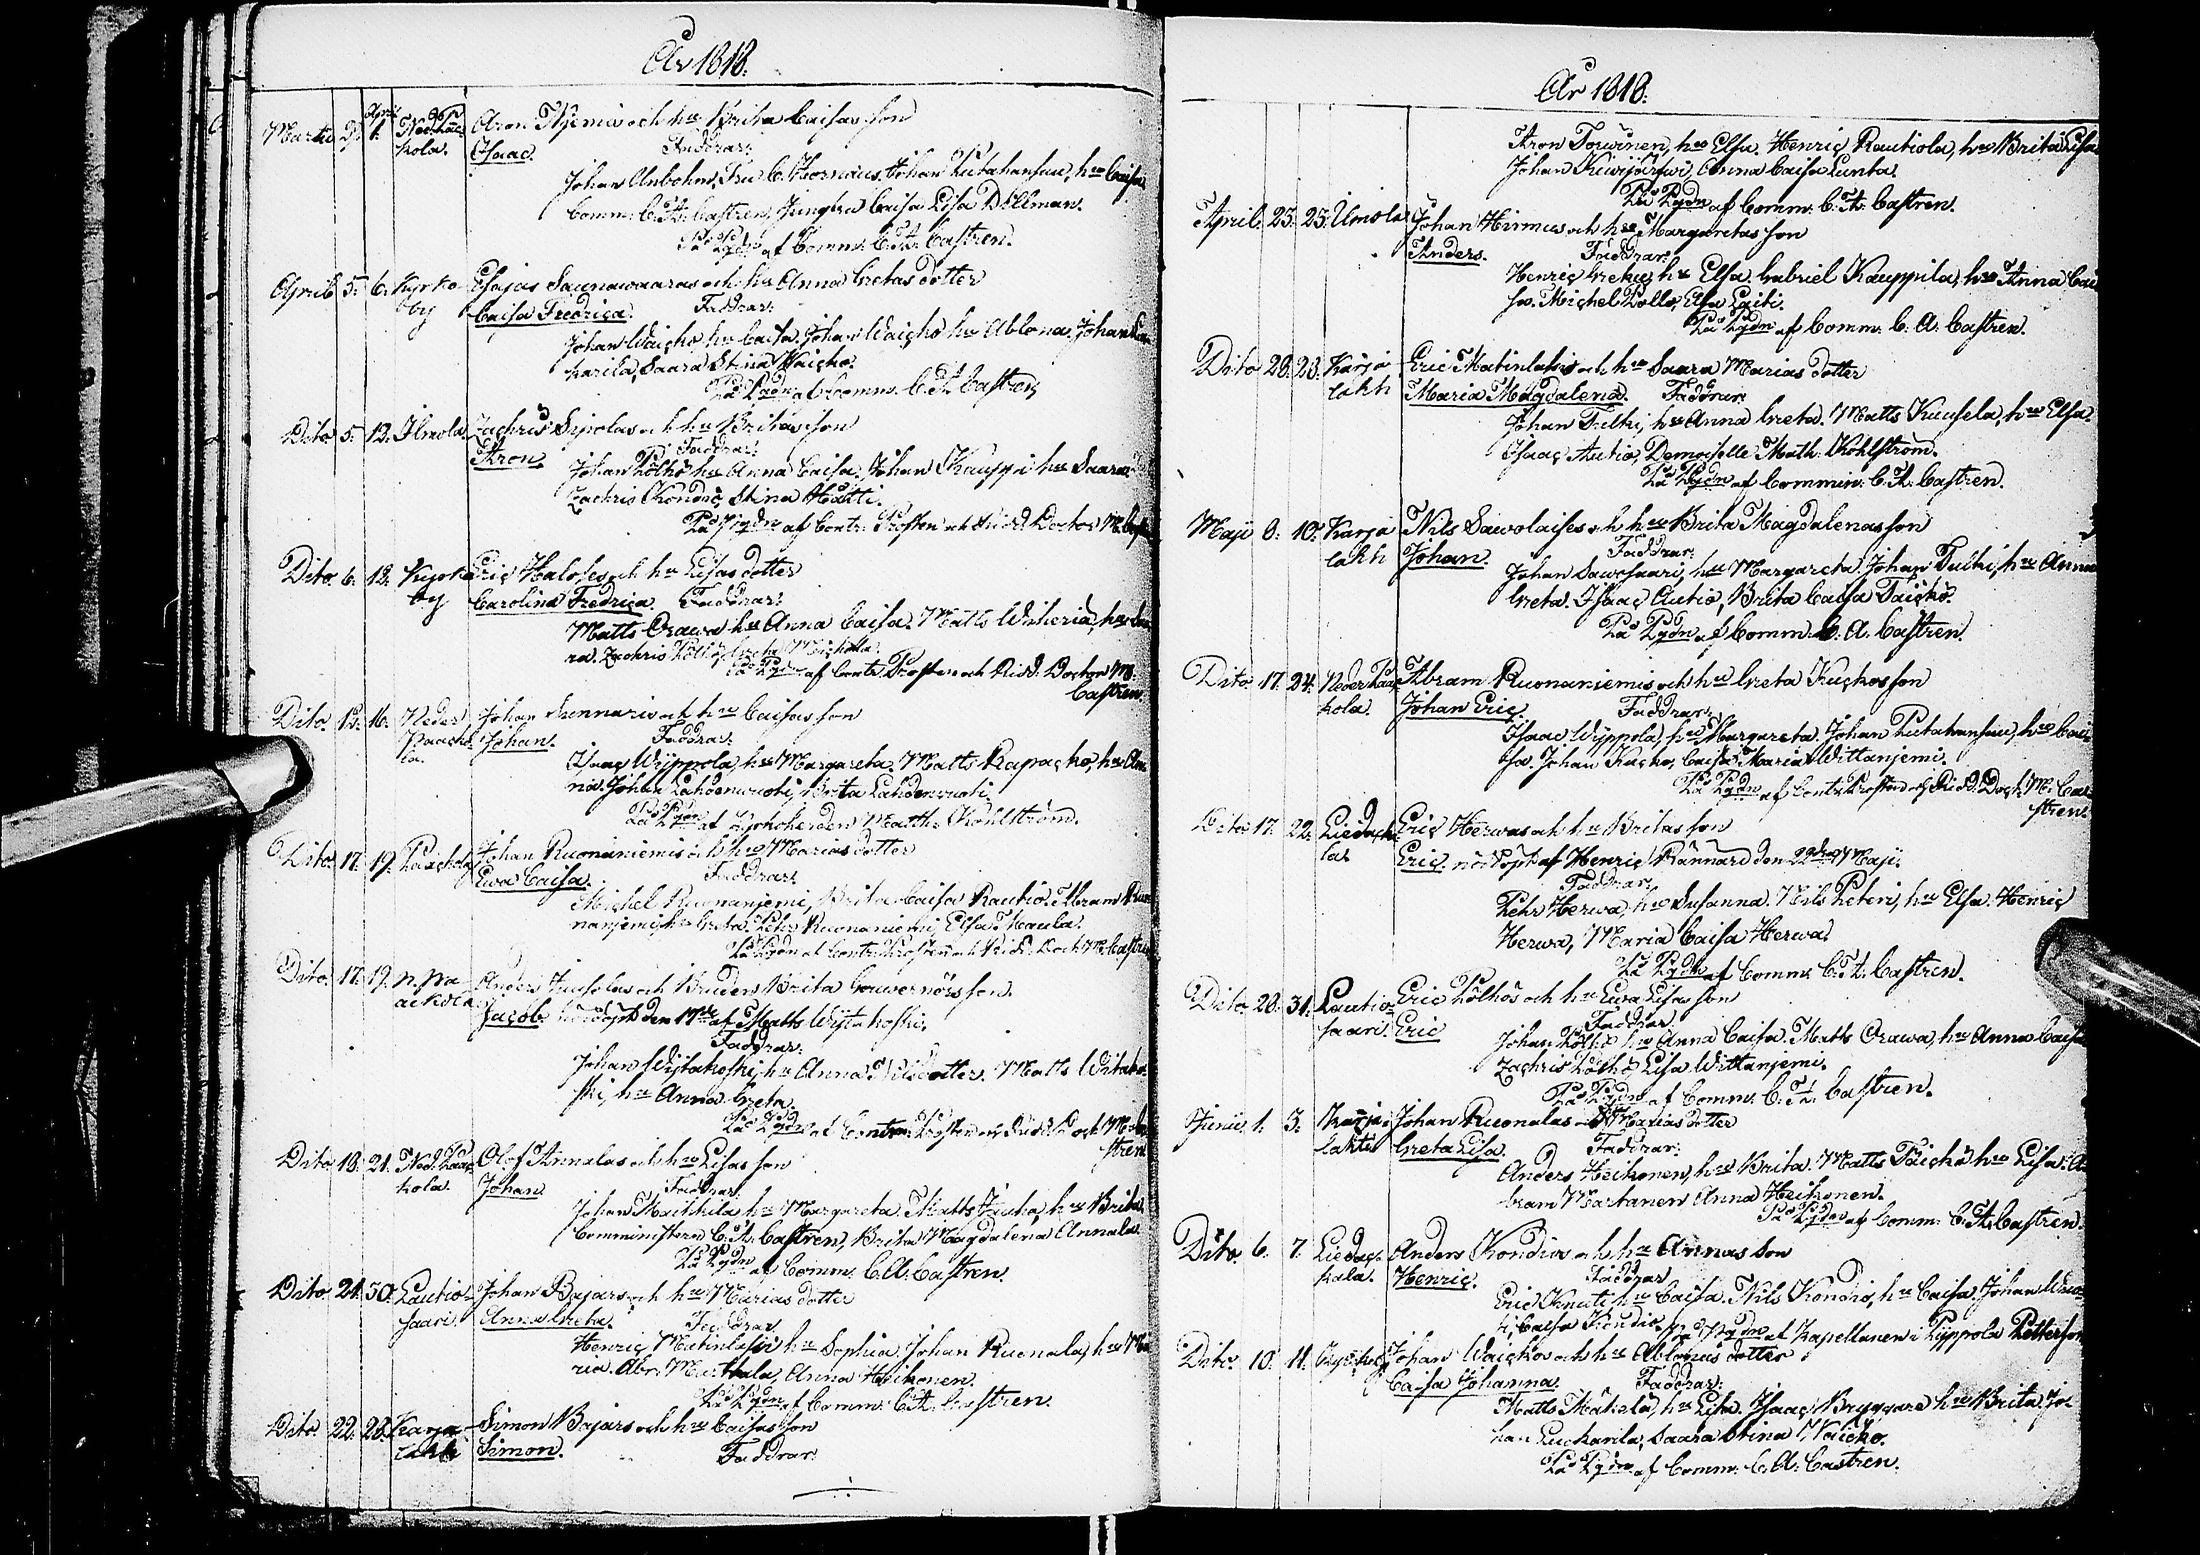 År 1818.
Martii 29. April 1. Ned. Paac
kola. Aron Niemis och hu Brita Caisas son
Isaac. Faddrar:
Johan Anbohm, Fru C. Johan Kutahansuu, hu Caisa
Comm: C. A. Castren, Jungfru Caisa Lisa Dellman.
af Comm. C. A. Castren.
April 5. 6. Kyrko
by Esajas Saunawaaras och hu Anna Gretas dotter
Caisa Fredrica. Faddrar:
Johan Waicko hu Caisa, Johan Waicko hu Ablona, Johan
karila, Saara Stina Waicko.
af Comm. C. A. Castren,
Dito 5. 12. Ilmola. Zachris Sipolas och hu Britas son
Aron Faddrar:
Johan Pölhö hu Anna Caisa, Johan Kauppi hu Saara
Zachris Kondio, Stina Hatti.
af Contr. Prosten och Ridd. Doctor M. Castr
Dito 6. 12. Kyrko
by Eric Haloses och hu Lisas dotter
Carolina Fredrica. Faddrar:
Matts Orawa hu Anna Caisa. Matts Wiheriä, hu
na. Zachris Pölhö, Greta
af Contr. Prosten och Ridd. Doctor M.
Castren.
Dito 13. 16. Neder
Paacko
la. Johan Sunnaris och hu Caisas son
Johan. Faddrar:
Isaac Wippola, hu Margareta. Matts Rapacko, hu An
na. Johan Lahdenwuoti, Brita Lahdenwuoti,
af Kyrkoherden Matth. Kohlström.
Dito 17. 19. Paackola Johan Ruonaniemis och hu Marias dotter
Ewa Caisa. Faddrar:
Michel Ruonanjemi, Brita Caisa Rautio. Abram Ruo
nanjemi, hu Greta. Pehr Ruonaniemi, Elsa Maula.
af Contr. Prosten och Ridd. Doct. M. Castren
Dito 17. 19. N. Pa
ackola Anders Juusolas och Bruden Brita Gouvernörs son.
Jacob. nöddöpt den 17de af Matts Wijtakoski,
Faddrar:
Johan Wijtakoski, hu Anna Nilsdotter. Matts Witako
ski, hu Anna Greta.
af Contr. Prosten och Ridd. Doct M. Ca
stren
Dito 18. 21. Ned. Paac
kola. Olof Annalas och hu Lisas son
Johan Faddrar
Johan Maikkila hu Margareta. Matts Jauho, hu Brita,
Comministern C. A. Castren, Brita Magdalena Annala.
af Comm. C. A. Castren.
Dito 21. 30. Lautio-
saari. Johan Bajars och hu Marias dotter
Anna Greta. Faddrar
Henric Matinlassi hu Sophia. Johan Ruonala, hu Ma
ria. Abr. Martkala, Anna Heikonen.
af Comm. C. A. Castren.
Dito 22. 28. Karja
lahti Simon Bajars och hu Caisas son
Simon. Faddrar:
År 1818.
Aron Torwinen, hu Elsa. Henric Rautiola, hu Brita Lisa
Johan Kiwijärwi, Anna Caisa Lunta.
af Comm. C. A. Castren.
April. 23. 25. Ilmola Johan Hirmus och hu Margaretas son
Anders. Faddrar:
Henric hu Elsa Gabriel Kauppila, hu Anna Cai
sa. Michel Pollo, Elsa Laiti.
af Comm. C. A. Castren.
Dito 28. 28. Karja
lahti Eric Matinlassis och hu Saara Marias dotter
Maria Magdalena. Faddrar
Johan Tulki, hu Anna Greta. Matts Kuusela, hu Elsa.
Isaac Autio, Demoiselle Math. Kohlström.
af Commin. C. A. Castren.
Maji 9. 10. Karja
lahti Nils Sawolaises och hu Brita Magdalenas son
Johan. Faddrar:
Johan Sawosaari, hu Margareta. Johan Tulki, hu Anna
Greta. Isaac Autio, Brita Caisa Taickö.
af Comm. C. A. Castren.
Dito 17. 24. Neder Paac
kola. Abram Ruonaniemis och hu Greta Kuckos son
Johan Eric Faddrar.
Isaac Wippola, hu Margareta. Johan Kutahansuu, hu Cai
sa. Johan Kucko, Caisa Maria Wittanjemi.
af Contr. Prosten och Ridd. Doct. M. Ca
stren.
Dito 17. 22. Liedacka
la. Eric Herwas och hu Britas son
Eric. nöddöpt af Henric Kännärä den 22dra Maji.
Faddrar.
Pehr Herwa, hu Susanna. Nils Peteri, hu Elsa. Henric
Herwa, Maria Caisa Herwa.
af Comm. C. A. Castren.
Dito 28. 31. Lautio
saari. Eric Pölhös och hu Ewa Lisas son
Eric Faddrar
Johan Pölhö hu Anna Caisa. Matts Orawa, hu Anna Caisa
Zachris Pölhö, Lisa Wittanjemi.
af Comm. C. A. Castren.
Junii 1. 3. Karja
lahti Johan Ruonalas och hu Marias dotter
Greta Lisa. Faddrar:
Anders Heikonen, hu Brita. Matts Taickö hu Lisa. A
bram Martanen Anna Heikonen.
af Comm. C. A. Castren.
Dito. 6. 7. Liedac
kala. Anders Kondios och hu Annas son
Henric. Faddrar
Eric Knuti hu Caisa. Nils Kondio, hu Caisa, Johan
Caisa Kondio. af Kapellanen i Pyppola Petterson
Dito 10. 11. Kyrkoby Johan Waickos och hu Ablonas dotter
Caisa Johanna. Faddrar:
Matts Mäkelä, hu Lisa. Isaac Bryggare hu Brita. Jo
han Luckarila, Saara Stina Waicko.
af Comm. C. A. Castren.